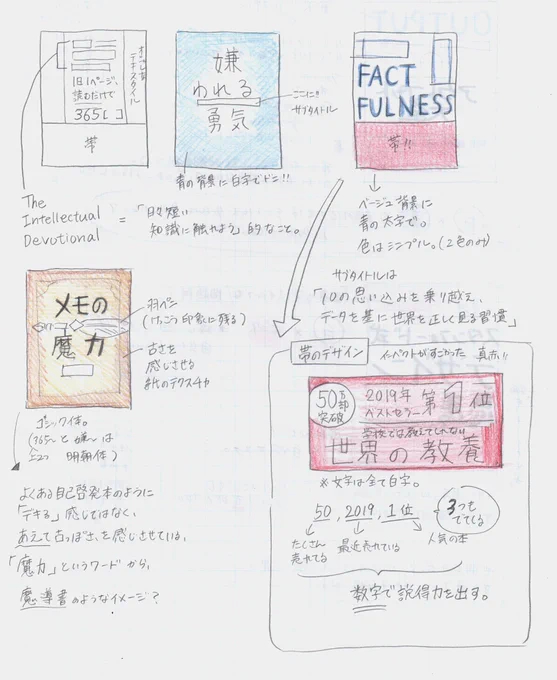 1日1ページ、
読むだけで
365[ ]
テキスタイル
帯
The
Intellectual
Devotional
=「日々短い
知識に触れよう」的なこと。
嫌
われる
勇気
ここに!!
サブタイトル
青の背景に白字でドン!!
FACT
FULNESS
帯!!
ベージュ背景に
青の太字で。
色はシンプル。(2色のみ)
サブタイトルは
「10の思い込みを乗り越え、
データを基に世界を正しく見る習慣」
メモの
魔力
羽ペン
(けっこう印象に残る)
古さを
感じさせる
紙のテクスチャ
ゴシック体。
(365〜と嫌〜は
明朝体)
よくある自己啓発本のように
「デキる」感じではなく、
あえて古っぽさを感じさせている。
「魔力」というワードから、
魔導書のようなイメージ?
帯のデザイン
インパクトがすごかった 真赤!!
50万部
突破
2019年
ベストセラー
第1位
学校では教えてくれない
世界の教養
※文字は全て白字。
50, 2019, 1位
3つも
でてくる
たくさん
売れてる
最近売れている
人気の本
数字で説得力を出す。